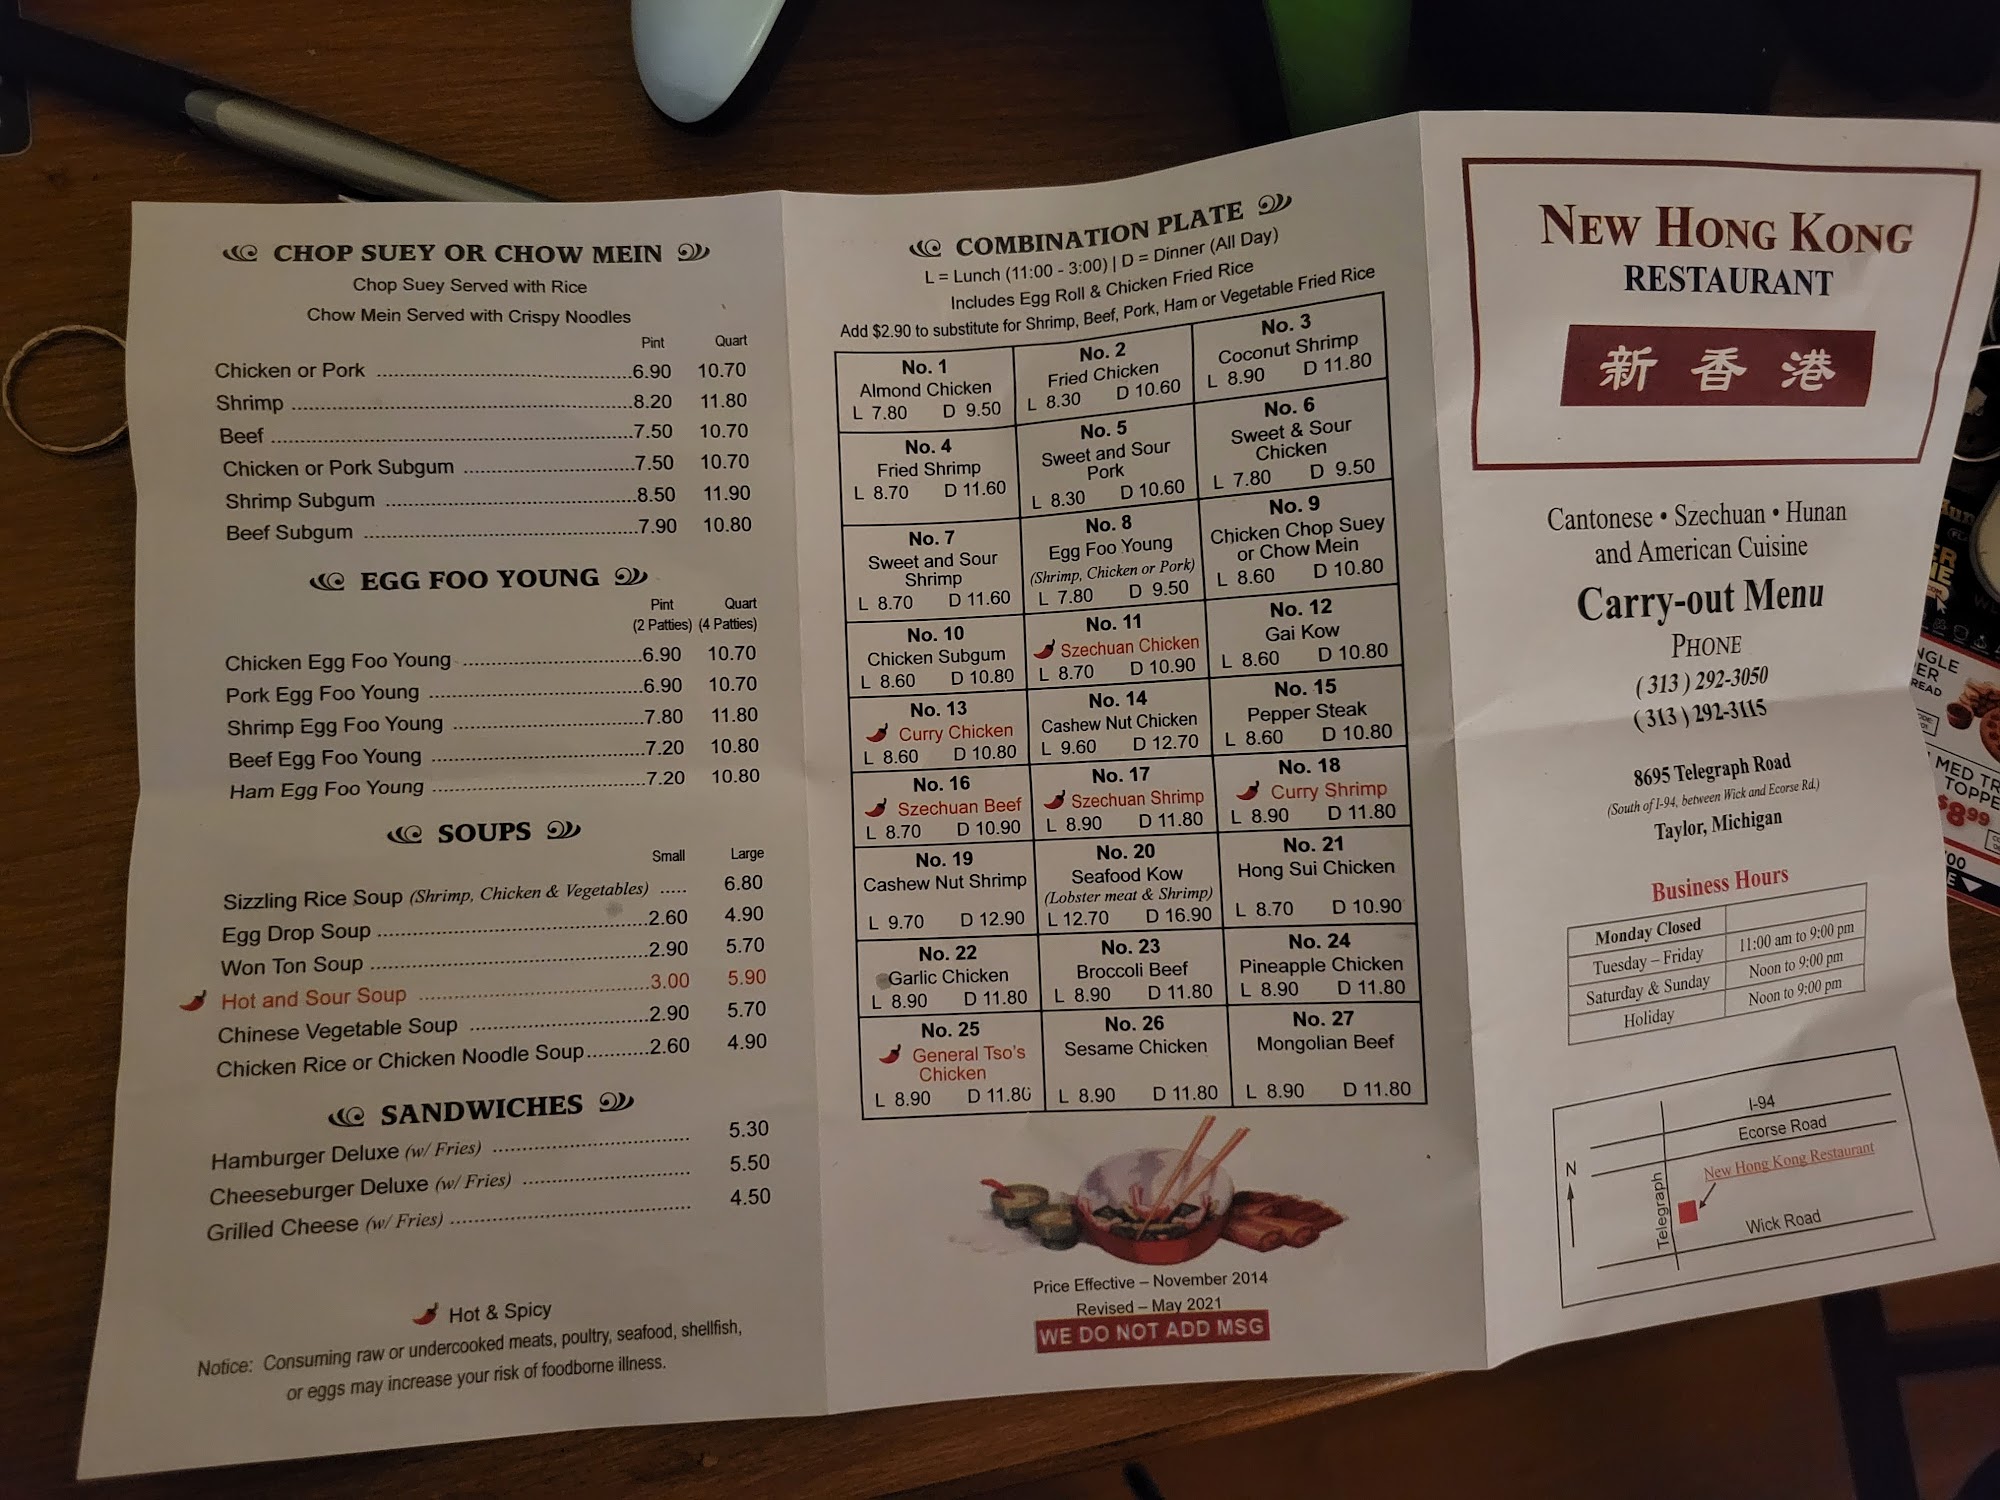 CHOP SUEY OR CHOW MEIN
Chop Suey Served with Rice
Chow Mein Served with Crispy Noodles
Pint Quart
Chicken or Pork ........ 6.90 10.70
Shrimp ........ 8.20 11.80
Beef ........ 7.50 10.70
Chicken or Pork Subgum ........ 7.50 10.70
Shrimp Subgum ........ 8.50 11.90
Beef Subgum ........ 7.90 10.80
EGG FOO YOUNG
Pint Quart
(2 Patties) (4 Patties)
Chicken Egg Foo Young ........ 6.90 10.70
Pork Egg Foo Young ........ 6.90 10.70
Shrimp Egg Foo Young ........ 7.80 11.80
Beef Egg Foo Young ........ 7.20 10.80
Ham Egg Foo Young ........ 7.20 10.80
SOUPS
Small Large
Sizzling Rice Soup (Shrimp, Chicken & Vegetables) ..... 6.80
Egg Drop Soup ........ 2.60 4.90
Won Ton Soup ........ 2.90 5.70
Hot and Sour Soup ........ 3.00 5.90
Chinese Vegetable Soup ........ 2.90 5.70
Chicken Rice or Chicken Noodle Soup ........ 2.60 4.90
SANDWICHES
Hamburger Deluxe (w/ Fries) ........ 5.30
Cheeseburger Deluxe (w/ Fries) ........ 5.50
Grilled Cheese (w/ Fries) ........ 4.50
Hot & Spicy
Notice: Consuming raw or undercooked meats, poultry, seafood, shellfish,
or eggs may increase your risk of foodborne illness.
COMBINATION PLATE
L = Lunch (11:00 - 3:00) | D = Dinner (All Day)
Includes Egg Roll & Chicken Fried Rice
Add $2.90 to substitute for Shrimp, Beef, Pork, Ham or Vegetable Fried Rice
No. 1
Almond Chicken
L 7.80 D 9.50
No. 2
Fried Chicken
L 8.30 D 10.60
No. 3
Coconut Shrimp
L 8.90 D 11.80
No. 4
Fried Shrimp
L 8.70 D 11.60
No. 5
Sweet and Sour
Pork
L 8.30 D 10.60
No. 6
Sweet & Sour
Chicken
L 7.80 D 9.50
No. 7
Sweet and Sour
Shrimp
L 8.70 D 11.60
No. 8
Egg Foo Young
(Shrimp, Chicken or Pork)
L 7.80 D 9.50
No. 9
Chicken Chop Suey
or Chow Mein
L 8.60 D 10.80
No. 10
Chicken Subgum
L 8.60 D 10.80
No. 11
Szechuan Chicken
L 8.70 D 10.90
No. 12
Gai Kow
L 8.60 D 10.80
No. 13
Curry Chicken
L 8.60 D 10.80
No. 14
Cashew Nut Chicken
L 9.60 D 12.70
No. 15
Pepper Steak
L 8.60 D 10.80
No. 16
Szechuan Beef
L 8.70 D 10.90
No. 17
Szechuan Shrimp
L 8.90 D 11.80
No. 18
Curry Shrimp
L 8.90 D 11.80
No. 19
Cashew Nut Shrimp
L 9.70 D 12.90
No. 20
Seafood Kow
(Lobster meat & Shrimp)
L 12.70 D 16.90
No. 21
Hong Sui Chicken
L 8.70 D 10.90
No. 22
Garlic Chicken
L 8.90 D 11.80
No. 23
Broccoli Beef
L 8.90 D 11.80
No. 24
Pineapple Chicken
L 8.90 D 11.80
No. 25
General Tso's
Chicken
L 8.90 D 11.80
No. 26
Sesame Chicken
L 8.90 D 11.80
No. 27
Mongolian Beef
L 8.90 D 11.80
Price Effective – November 2014
Revised – May 2021
WE DO NOT ADD MSG
NEW HONG KONG
RESTAURANT
新香港
Cantonese • Szechuan • Hunan
and American Cuisine
Carry-out Menu
PHONE
(313) 292-3050
(313) 292-3115
8695 Telegraph Road
(South of I-94, between Wick and Ecorse Rd.)
Taylor, Michigan
Business Hours
Monday Closed
Tuesday – Friday 11:00 am to 9:00 pm
Saturday & Sunday Noon to 9:00 pm
Holiday Noon to 9:00 pm
I-94
Ecorse Road
N
New Hong Kong Restaurant
Telegraph
Wick Road
MED
TOPPE
$8.99